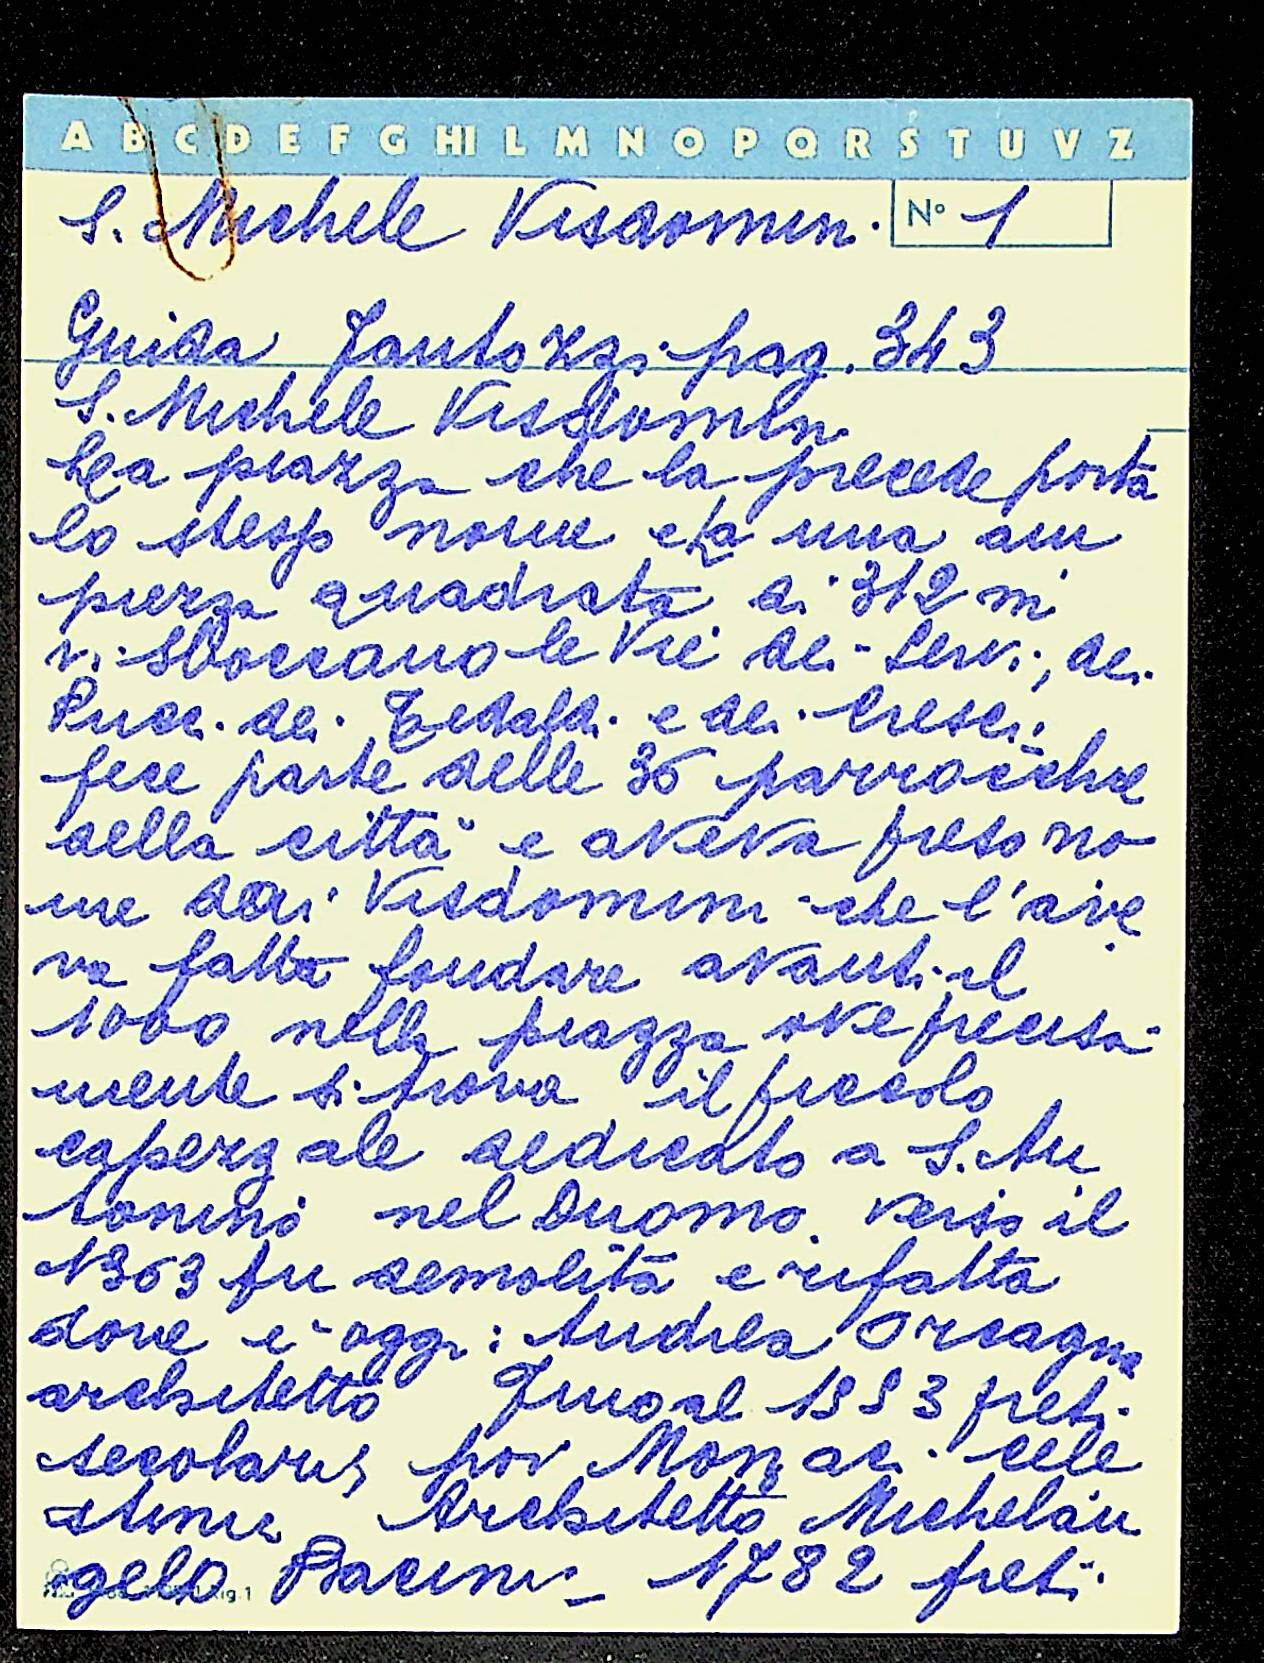 A B C D E F G HI L M N O P Q R S T U V Z
S. Michele Visdomin. Nº 1
Guida Fantozzi pag. 343
S. Michele Visdomin.
La piazza che la precede porta
lo stesso nome e ha una am
piezza quadrata di 312 m
vi sboccano le Vie dei Servi, dei
Pucci dei Tedaldi e dei Cresci.
fece parte delle 36 parrocchie
della città e aveva preso no
me dai Visdomini che l'ave
va fatta fondare avanti il
1000 nella piazza ove precisa
mente si trova il piccolo
capezzale dedicato a S. An
tonino nel Duomo. Verso il
1363 fu demolita e rifatta
dove è oggi: Andrea Orcagna
architetto Fino al 1553 preti
secolari, poi Monaci cele
stini Architetto Michelan
gelo Pacini - 1782 preti